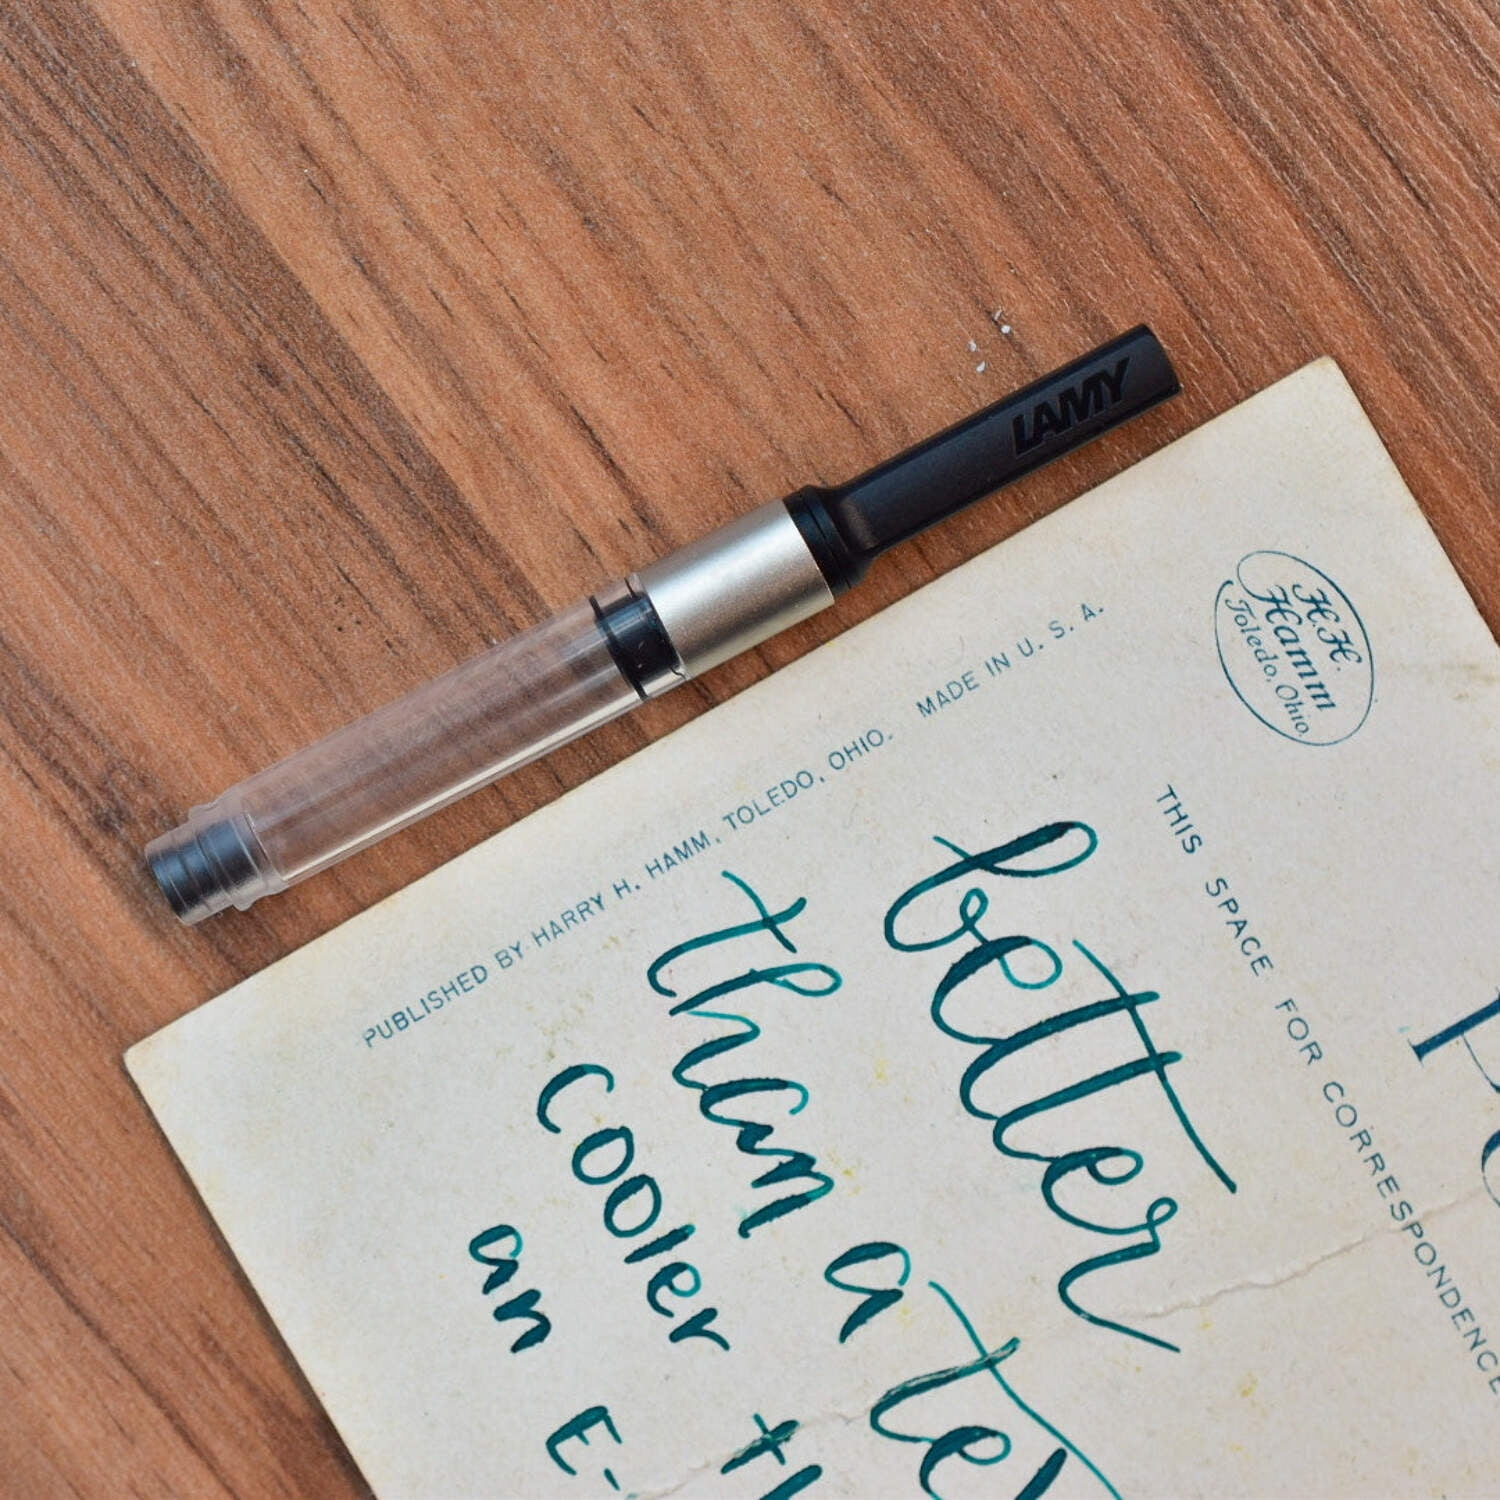 LAMY
PUBLISHED BY HARRY H. HAMM, TOLEDO, OHIO. MADE IN U. S. A.
H.H.
Hamm
Toledo, Ohio
THIS SPACE FOR CORRESPONDENCE
better
than a
cooler th
an E-